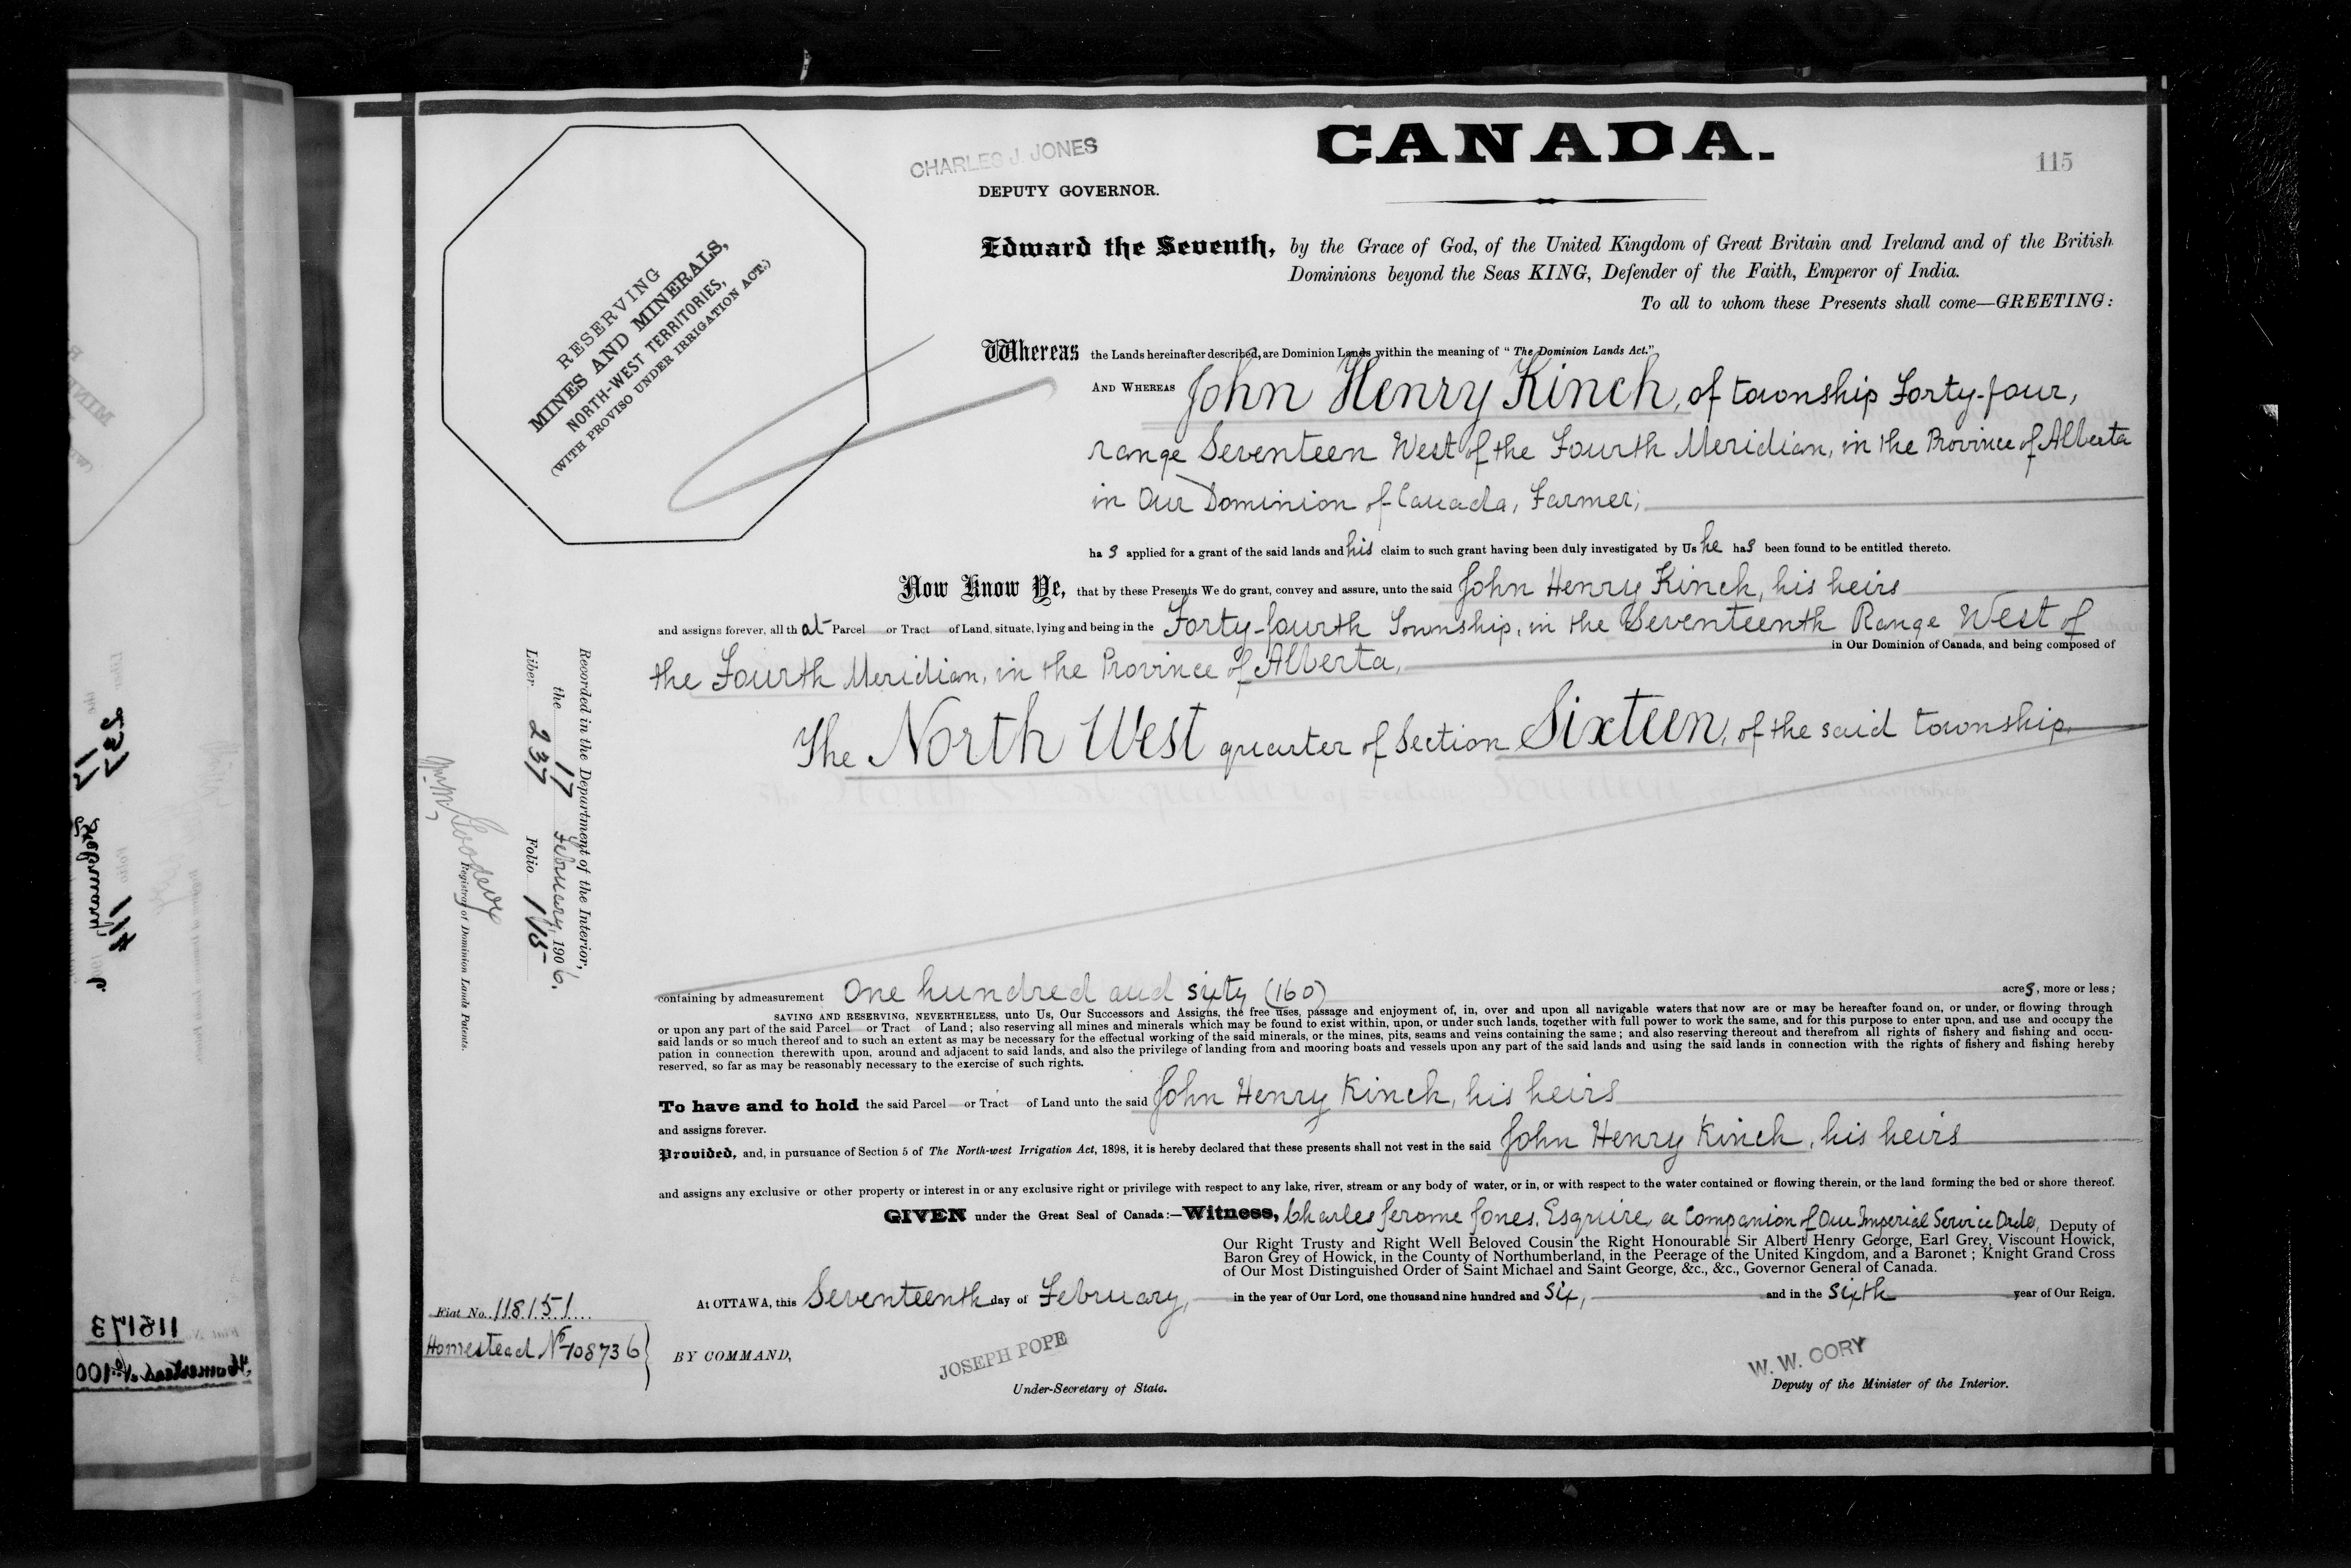 CANADA.
115
CHARLES J. JONES
DEPUTY GOVERNOR.
RESERVING
MINES AND MINERALS,
NORTH-WEST TERRITORIES,
(WITH PROVISO UNDER IRRIGATION ACT.)
Edward the Seventh, by the Grace of God, of the United Kingdom of Great Britain and Ireland and of the British
Dominions beyond the Seas KING, Defender of the Faith, Emperor of India.
To all to whom these Presents shall come—GREETING:
Whereas the Lands hereinafter described, are Dominion Lands within the meaning of "The Dominion Lands Act."
AND WHEREAS John Henry Kinch, of township Forty-four,
range Seventeen West of the Fourth Meridian, in the Province of Alberta
in Our Dominion of Canada, Farmer,
has applied for a grant of the said lands and his claim to such grant having been duly investigated by Us he has been found to be entitled thereto.
Now Know Ye, that by these Presents We do grant, convey and assure, unto the said John Henry Kinch, his heirs
and assigns forever, all that Parcel or Tract of Land, situate, lying and being in the Forty-fourth Township, in the Seventeenth Range West of
the Fourth Meridian, in the Province of Alberta, in Our Dominion of Canada, and being composed of
The North West quarter of Section Sixteen, of the said township.
containing by admeasurement One hundred and sixty (160) acres, more or less;
SAVING AND RESERVING, NEVERTHELESS, unto Us, Our Successors and Assigns, the free uses, passage and enjoyment of, in, over and upon all navigable waters that now are or may be hereafter found on, or under, or flowing through
or upon any part of the said Parcel or Tract of Land; also reserving all mines and minerals which may be found to exist within, upon, or under such lands, together with full power to work the same, and for this purpose to enter upon, and use and occupy the
said lands or so much thereof and to such an extent as may be necessary for the effectual working of the said minerals, or the mines, pits, seams and veins containing the same; and also reserving thereout and therefrom all rights of fishery and fishing and occu-
pation in connection therewith upon, around and adjacent to said lands, and also the privilege of landing from and mooring boats and vessels upon any part of the said lands and using the said lands in connection with the rights of fishery and fishing hereby
reserved, so far as may be reasonably necessary to the exercise of such rights.
To have and to hold the said Parcel or Tract of Land unto the said John Henry Kinch, his heirs
and assigns forever.
Provided, and, in pursuance of Section 5 of The North-west Irrigation Act, 1898, it is hereby declared that these presents shall not vest in the said John Henry Kinch, his heirs
and assigns any exclusive or other property or interest in or any exclusive right or privilege with respect to any lake, river, stream or any body of water, or in, or with respect to the water contained or flowing therein, or the land forming the bed or shore thereof.
GIVEN under the Great Seal of Canada:—Witness, Charles Jerome Jones, Esquire, a Companion of Our Imperial Service Order, Deputy of
Our Right Trusty and Right Well Beloved Cousin the Right Honourable Sir Albert Henry George, Earl Grey, Viscount Howick,
Baron Grey of Howick, in the County of Northumberland, in the Peerage of the United Kingdom, and a Baronet; Knight Grand Cross
of Our Most Distinguished Order of Saint Michael and Saint George, &c., &c., Governor General of Canada.
At OTTAWA, this Seventeenth day of February, in the year of Our Lord, one thousand nine hundred and Six, and in the sixth year of Our Reign.
BY COMMAND,
JOSEPH POPE
Under-Secretary of State.
W. W. CORY
Deputy of the Minister of the Interior.
Fiat No. 118151
Homestead No 108736
Recorded in the Department of the Interior,
the 17 February, 1906.
Liber 237 Folio 115
Registrar of Dominion Lands Patents.
118173